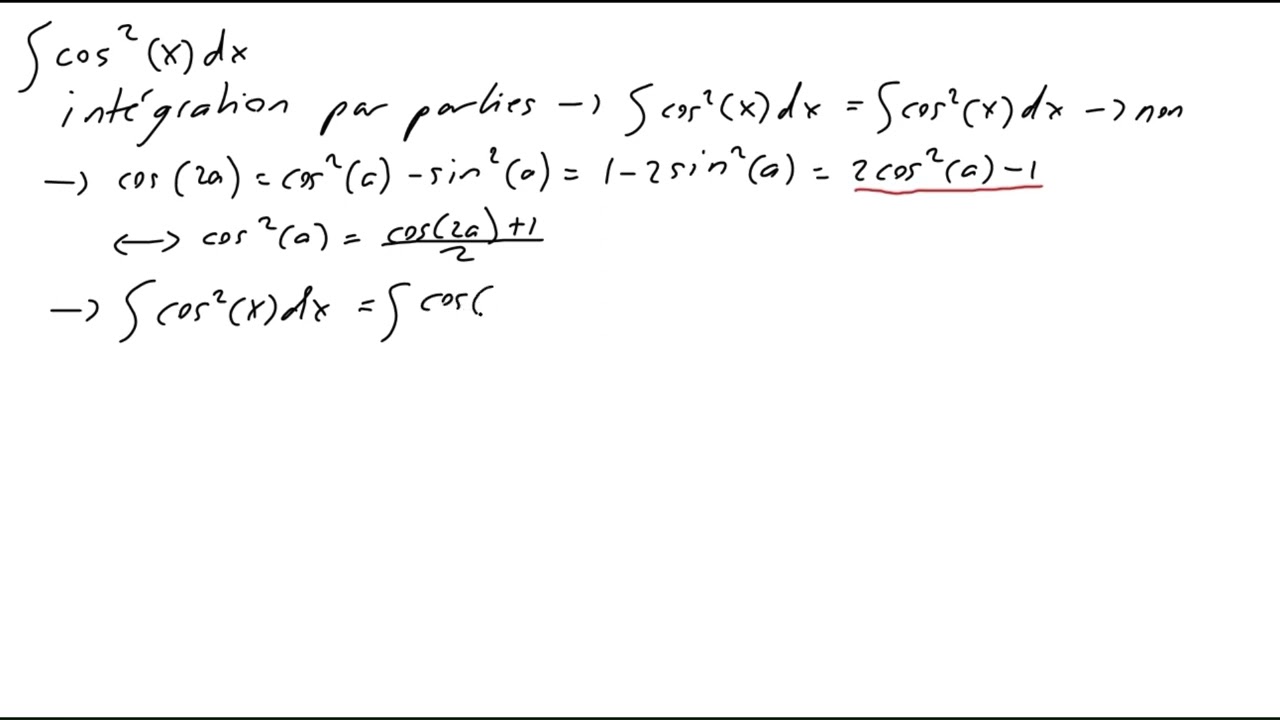 ∫ cos²(x) dx
intégration par parties → ∫ cos²(x) dx = ∫ cos²(x) dx → non
→ cos (2a) = cos²(a) - sin²(a) = 1 - 2 sin²(a) = 2 cos²(a) - 1
↔ cos²(a) = (cos(2a) + 1)/2
→ ∫ cos²(x) dx = ∫ cos(